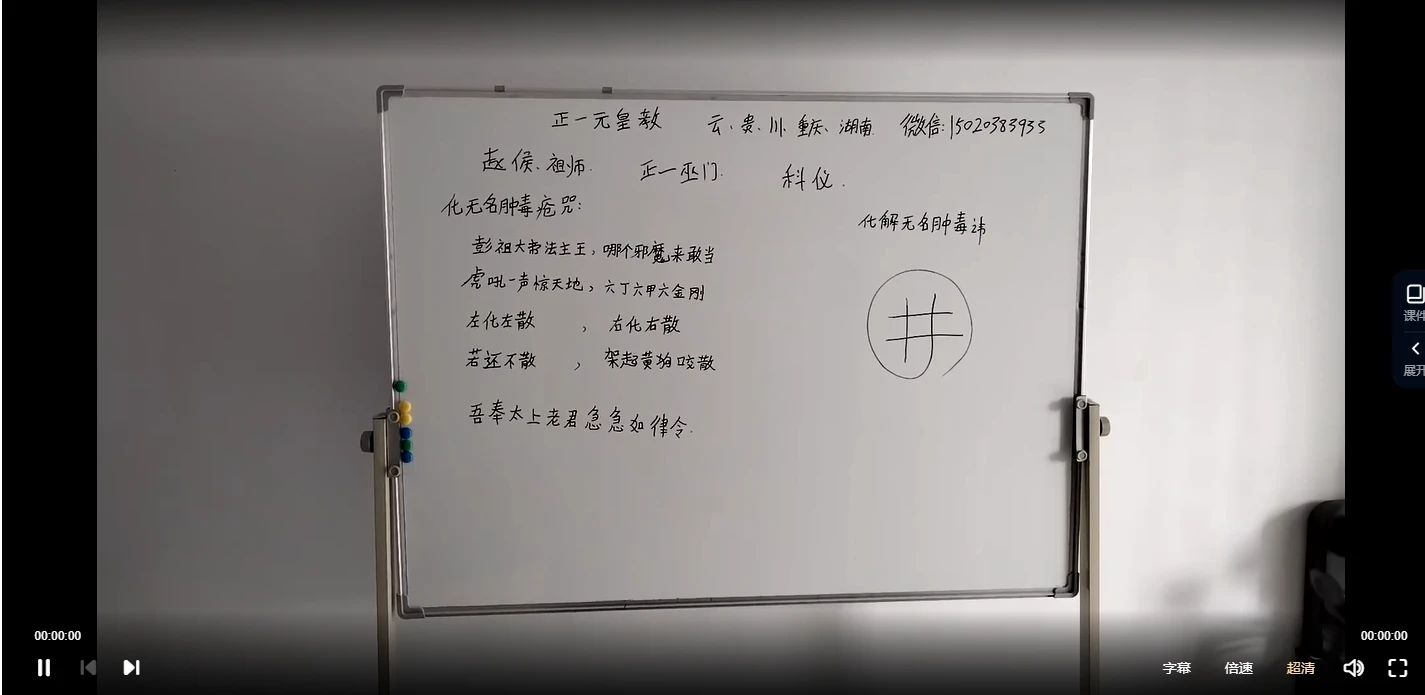 正一元皇教 云、贵、川、重庆、湖南. 微信:15020383933
赵侯、祖师. 正一巫门. 科仪.
化无名肿毒疮咒:
化解无名肿毒讳
彭祖大帝法主王,哪个邪魔来敢当
虎吼一声惊天地,六丁六甲六金刚
左化左散 , 右化右散
若还不散 , 架起黄狗咬散
吾奉太上老君急急如律令.
井
课件
展开
00:00:00
00:00:00
字幕
倍速
超清